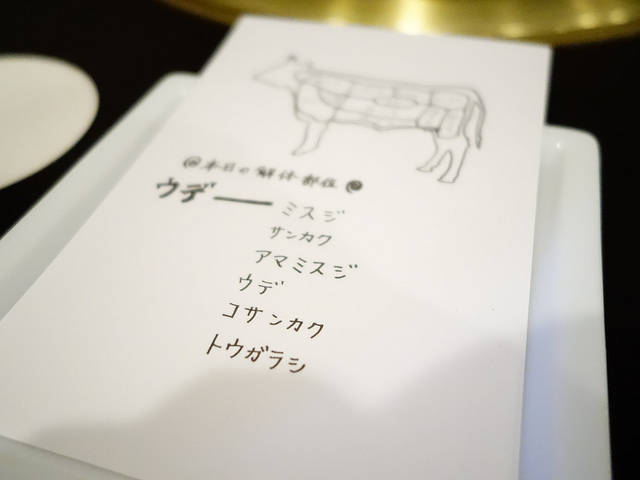 @本日の解体部位@
ウデー ミスジ
サンカク
アマミスジ
ウデ
コサンカク
トウガラシ